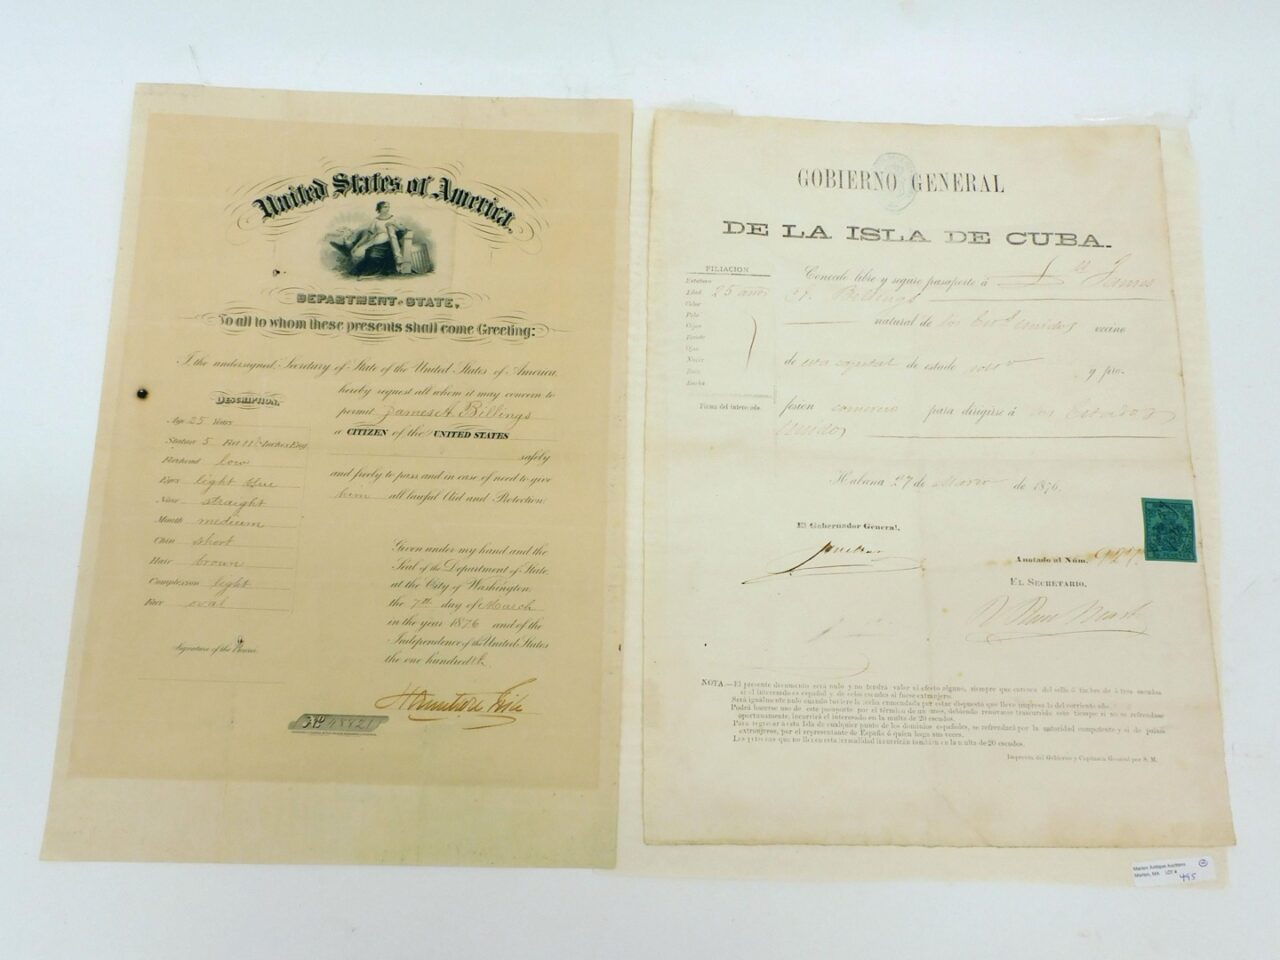 United States of America.
DEPARTMENT OF STATE,
To all to whom these presents shall come Greeting:
I the undersigned, Secretary of State of the United States of America
hereby request all whom it may concern to
permit James A. Billings
a CITIZEN of the UNITED STATES
safely
and freely to pass and in case of need to give
him all lawful Aid and Protection
DESCRIPTION.
Age 25 Years
Stature 5 Feet 11 Inches Eng
Forehead low
Eyes light blue
Nose straight
Mouth medium
Chin short
Hair brown
Complexion light
Face oval
Signature of the Bearer
Given under my hand and the
Seal of the Department of State,
at the City of Washington
the 7th day of March
in the year 1876 and of the
Independence of the United States
the one hundredth.
Hamilton Fish
GOBIERNO GENERAL
DE LA ISLA DE CUBA.
FILIACION
Estatura
Edad 25 años
Color
Pelo
Ojos
Nariz
Boca
Barba
Firma del interesado.
Concedo libre y seguro pasaporte á James
Billings
natural de los Est. Unidos vecino
de esta capital de estado y pro-
fesion comercio para dirigirse á los Estados
Unidos
Habana 27 de Marzo de 1876.
El Gobernador General,
Anotado al Núm.
EL SECRETARIO.
NOTA.—El presente documento será nulo y no tendrá valor ni efecto alguno, siempre que carezca del sello
si el interesado es español y de ocho escudos si fuese extranjero.
Será igualmente nulo cuando
Podrá hacerse uso de este pasaporte por el término de un mes, debiendo renovarse trascurrido este tiempo si no se refrendase
oportunamente, incurrirá el interesado en la multa de 20 escudos.
Para regresar á esta Isla de cualquier punto de los dominios españoles, se refrendará por la autoridad competente y si de países
extranjeros, por el representante de España ó quien haga sus veces.
Las personas que no llenen esta formalidad incurrirán tambien en la multa de 20 escudos.
Imprenta del Gobierno y Capitanía General por S. M.
Marion Antique Auctions
Marion, MA LOT # 495